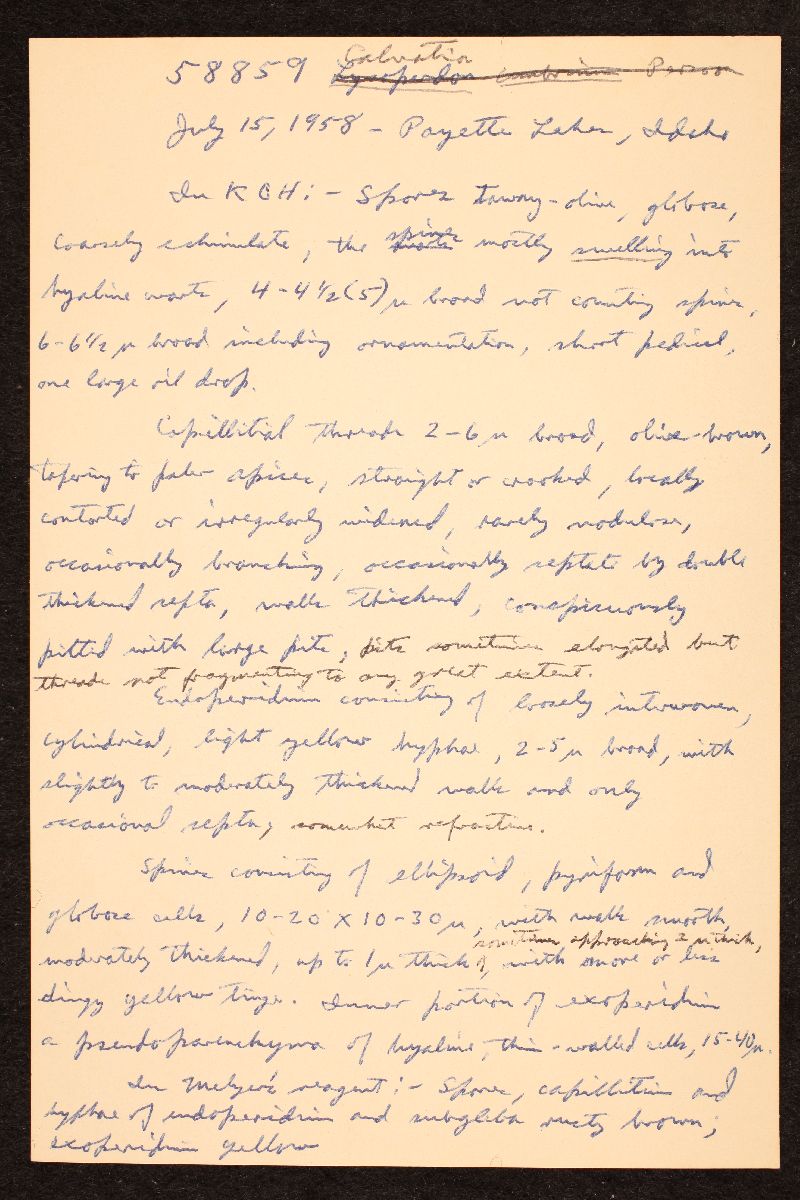 Calvatia
58859 Lycoperdon umbrinum Persoon
July 15, 1958 - Payette Lakes, Idaho
In KOH: - Spores tawny-olive, globose,
coarsely echinulate, the spines mostly swelling into
hyaline warts, 4-4½(5)μ broad not counting spines,
6-6½ μ broad including ornamentation, short pedicel,
one large oil drop.
Capillitial threads 2-6μ broad, olive-brown,
tapering to paler apices, straight or crooked, locally
contorted or irregularly widened, rarely nodulose,
occasionally branching, occasionally septate by double
thickened septa, walls thickened, conspicuously
pitted with large pits, pits sometimes elongated but
threads not fragmenting to any great extent.
Endoperidium consisting of loosely interwoven,
cylindrical, light yellow hyphae, 2-5μ broad, with
slightly to moderately thickened walls and only
occasional septa; somewhat refractive.
Spines consisting of ellipsoid, pyriform and
globose cells, 10-20 x 10-30μ, with walls smooth,
sometimes approaching 2 μ thick,
moderately thickened, up to 1μ thick, with more or less
dingy yellow tinge. Inner portion of exoperidium
a pseudoparenchyma of hyaline, thin-walled cells, 15-40μ.
In Melzer's reagent: - Spores, capillitium and
hyphae of endoperidium and subgleba rusty brown;
exoperidium yellow